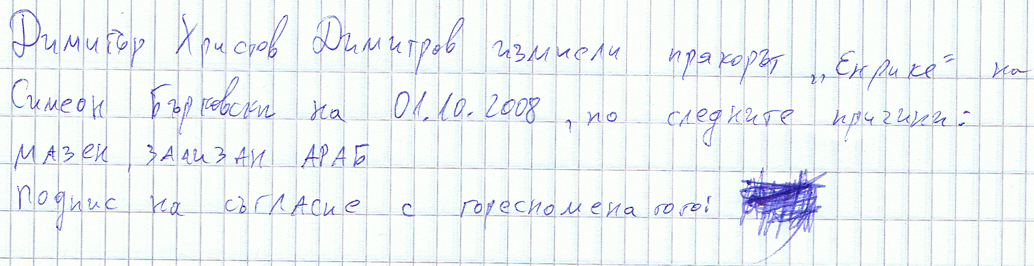 Димитър Христов Димитров измисли прякорът „Енрике“ на
Симеон Бърковски на 01.10.2008, по следните причини:
МАЗЕН, ЗАЛИЗАН АРАБ
Подпис на съгласие с гореспоменатото: